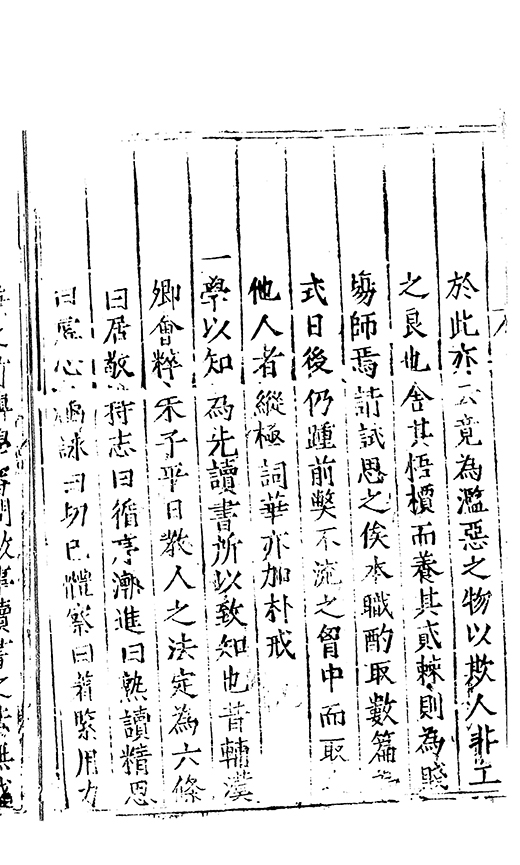 於此亦云竟為濫惡之物以欺人非工
之良也舍其梧檟而養其貳棘則為賤
塲師焉請試思之俟本職酌取數篇
式日後仍踵前獘不流之胷中而取
他人者縱極詞華亦加朴戒
一學以知為先讀書所以致知也昔輔漢
卿會粹朱子平日敎人之法定為六條
曰居敬持志曰循序漸進曰熟讀精思
曰虛心涵詠曰切己體察曰著緊用力
讀書之法無